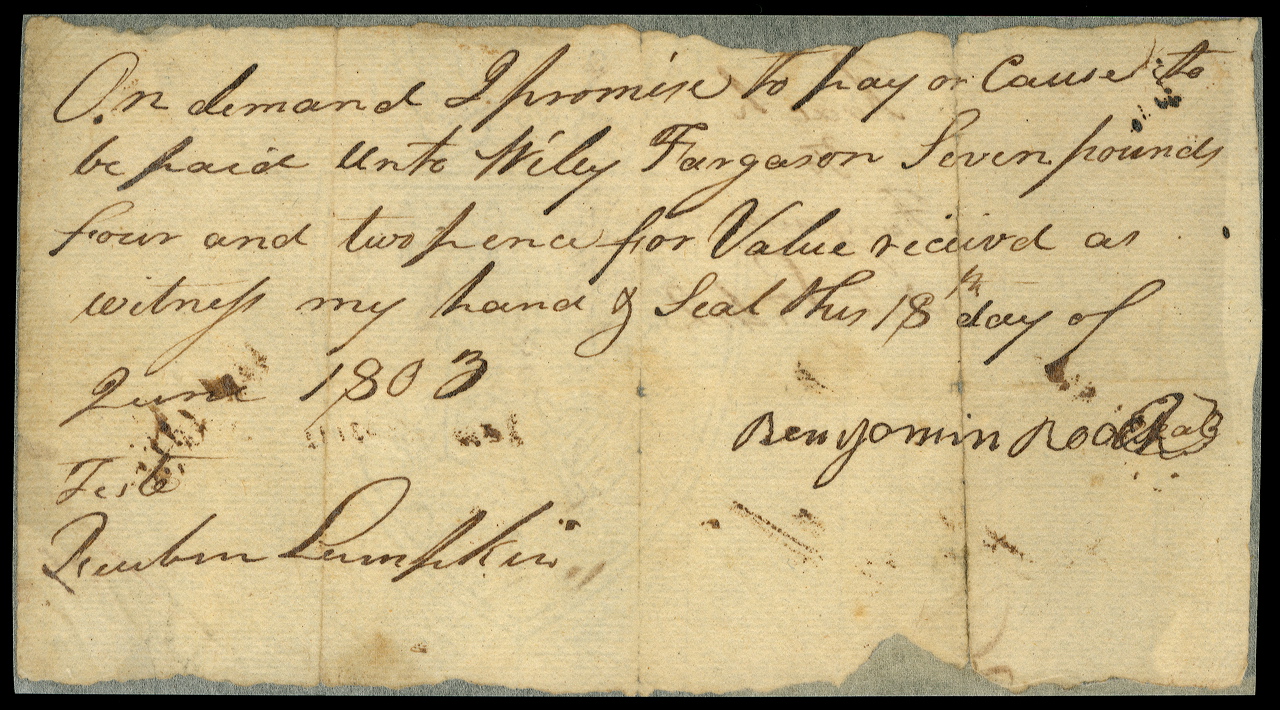 On demand I promise to pay or Cause to
be paid Unto Wiley Fargason Seven pounds
four and two pence for Value receivd as
witness my hand & Seal this 18th day of
June 1803
Benjomin Seal
Teste
Reubin Lumpkin